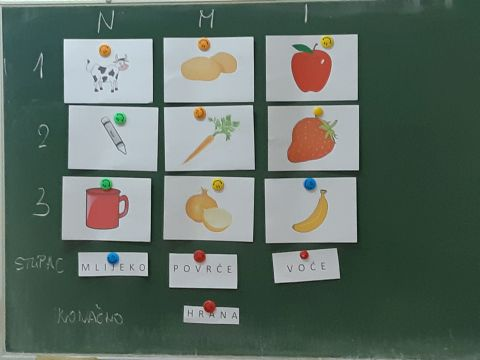 N M I
1
2
3
STUPAC MLIJEKO POVRĆE VOĆE
KONAČNO HRANA